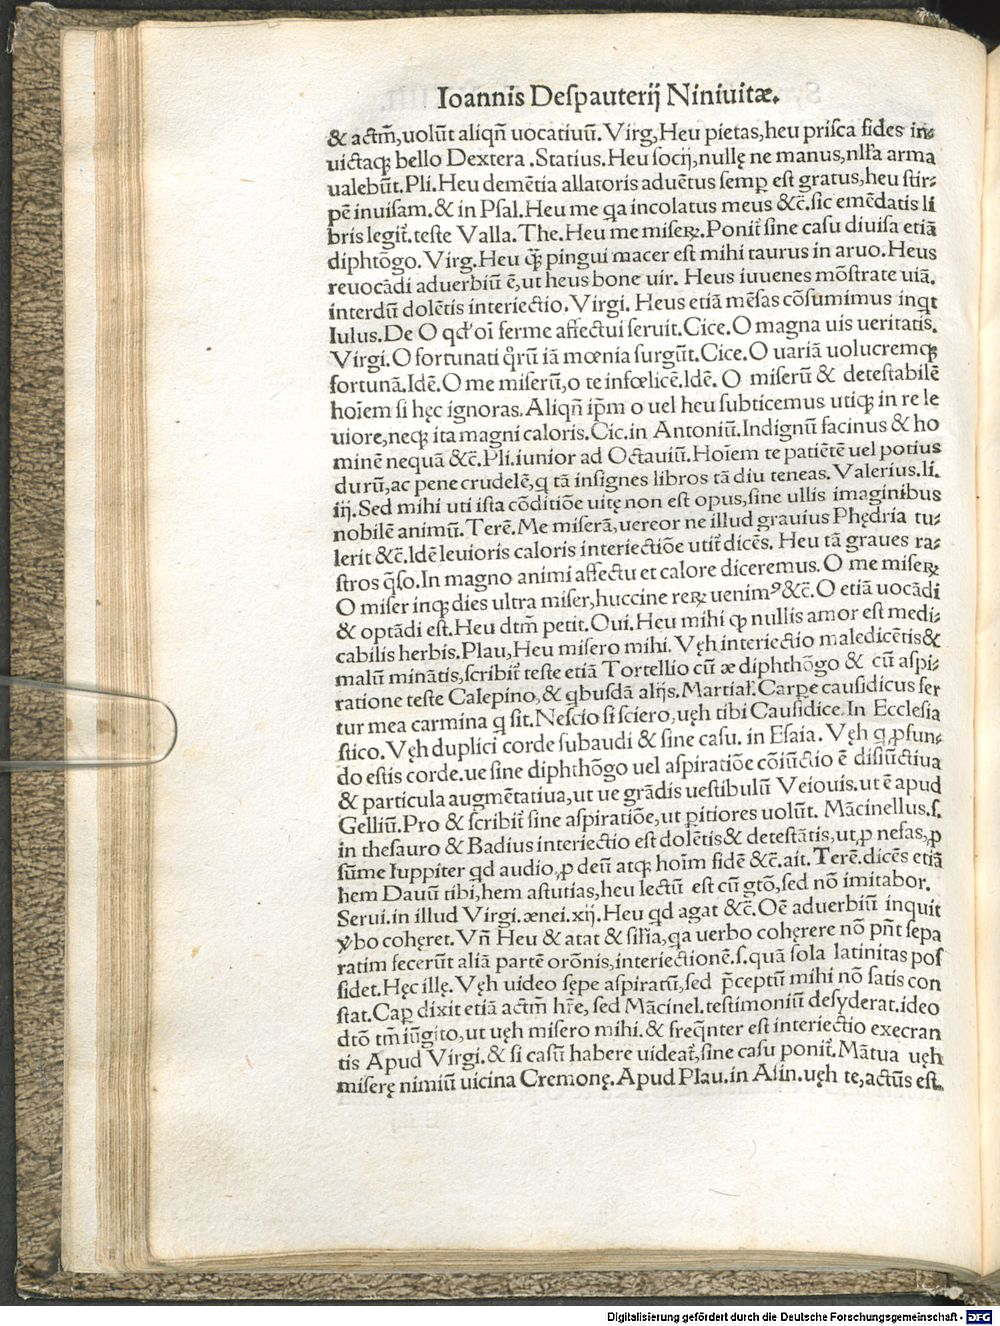 Ioannis Deſpauterij Niniuitæ.
& actm̃,uolũt aliqñ uocatiuũ. Virg,Heu pietas,heu priſca fides in⸗
uictaqꝫ bello Dextera .Statius.Heu ſocij,nullę ne manus,nlľa arma
ualebũt.Pli.Heu demẽtia allatoris aduẽtus ſemꝑ eſt gratus,heu ſtir⸗
pẽ inuiſam.& in Pſal.Heu me qa incolatus meus &c̃.ſic emẽdatis li
bris legit̃.teſte Valla.The.Heu me miſeꝝ.Ponit̃ ſine caſu diuiſa etiã
diphtõgo.Virg.Heu q̃ꝫ pingui macer eſt mihi taurus in aruo.Heus
reuocãdi aduerbiũ ẽ,ut heus bone uir. Heus iuuenes mõſtrate uiã.
interdũ dolẽtis interiectio.Virgi. Heus etiã mẽſas cõſumimus inqt
Iulus.De O qď oĩ ferme affectui ſeruit.Cice.O magna uis ueritatis.
Virgi.O fortunati q̊rũ iã mœnia ſurgũt.Cice.O uariã uolucremqꝫ
fortunã.Idẽ.O me miſerũ,o te infœlicẽ.Idẽ. O miſerũ & deteſtabilẽ
hoĩem ſi hęc ignoras.Aliqñ ip̃m o uel heu ſubticemus utiqꝫ in re le
uiore,neqꝫ ita magni caloris.Cic.in Antoniũ.Indignũ facinus & ho
minẽ nequã &c̃.Pli.iunior ad Octauiũ.Hoĩem te patiẽtẽ uel potius
durũ,ac pene crudelẽ,q tã inſignes libros tã diu teneas.Valerius.li.
iij.Sed mihi uti iſta cõditiõe uitę non eſt opus,ſine ullis imaginibus
nobilẽ animũ.Terẽ.Me miſerã,uereor ne illud grauius Phędria tu⸗
lerit &c̃.Idẽ leuioris caloris interiectiõe utit̃ dicẽs. Heu tã graues ra⸗
ſtros q̃ſo.In magno animi affectu et calore diceremus.O me miſeꝝ
O miſer inqꝫ dies ultra miſer,huccine reꝝ uenimꝰ&c̃.O etiã uocãdi
& optãdi eſt.Heu dtm̃ petit.Oui.Heu mihi ꝙ nullis amor eſt medi⸗
cabilis herbis.Plau,Heu miſero mihi. Vęh interiectio maledicẽtis&
malũ minãtis,ſcribit̃ teſte etiã Tortellio cũ æ diphthõgo & cũ aſpi⸗
ratione teſte Calepino,& qbuſdã alijs.Martiaľ.Carpe cauſidicus fer
tur mea carmina q ſit.Neſcio ſi ſciero,uęh tibi Cauſidice.In Eccleſia
ſtico.Vęh duplici corde ſubaudi & ſine caſu. in Eſaia. Vęh q ꝓfun⸗
do eſtis corde.ue ſine diphthõgo uel aſpiratiõe cõiũctio ẽ diſiũctiua
& particula augmẽtatiua,ut ue grãdis ueſtibulũ Veiouis.ut ẽ apud
Gelliũ.Pro & ſcribit̃ ſine aſpiratiõe,ut ꝑitiores uolũt. Mãcinellus.ſ.
in theſauro & Badius interiectio eſt dolẽtis& deteſtãtis,ut,ꝓ neſas,ꝓ
ſũme Iuppiter qd audio,ꝓ deũ atqꝫ hoĩm fidẽ &c̃.ait.Terẽ.dicẽs etiã
hem Dauũ tibi,hem aſtutias,heu lectũ eſt cũ gtõ,ſed nõ imitabor.
Serui.in illud Virgi.ænei.xij.Heu qd agat &c̃.Oẽ aduerbiũ inquit
ꝟbo cohęret.Vñ Heu & atat & ſiľia,qa uerbo cohęrere nõ pñt ſepa
ratim fecerũt aliã partẽ orõnis,interiectionẽ.ſ.quã ſola latinitas poſ
ſidet.Hęc illę.Vęh uideo ſępe aſpiratũ,ſed p̃ceptũ mihi nõ ſatis con
ſtat.Capꝑ dixit etiã actm̃ hr̃e, ſed Mãcinel.teſtimoniũ deſyderat.ideo
dtõ tm̃ iũgito,ut uęh miſero mihi.& freqñter eſt interiectio execran
tis Apud Virgi.& ſi caſũ habere uideat̃,ſine caſu ponit̃.Mãtua uęh
miſerę nimiũ uicina Cremonę.Apud Plau.in Aſin.uęh te,actũs eſt.
Digitalisierung gefördert durch die Deutsche Forschungsgemeinschaft - DFG